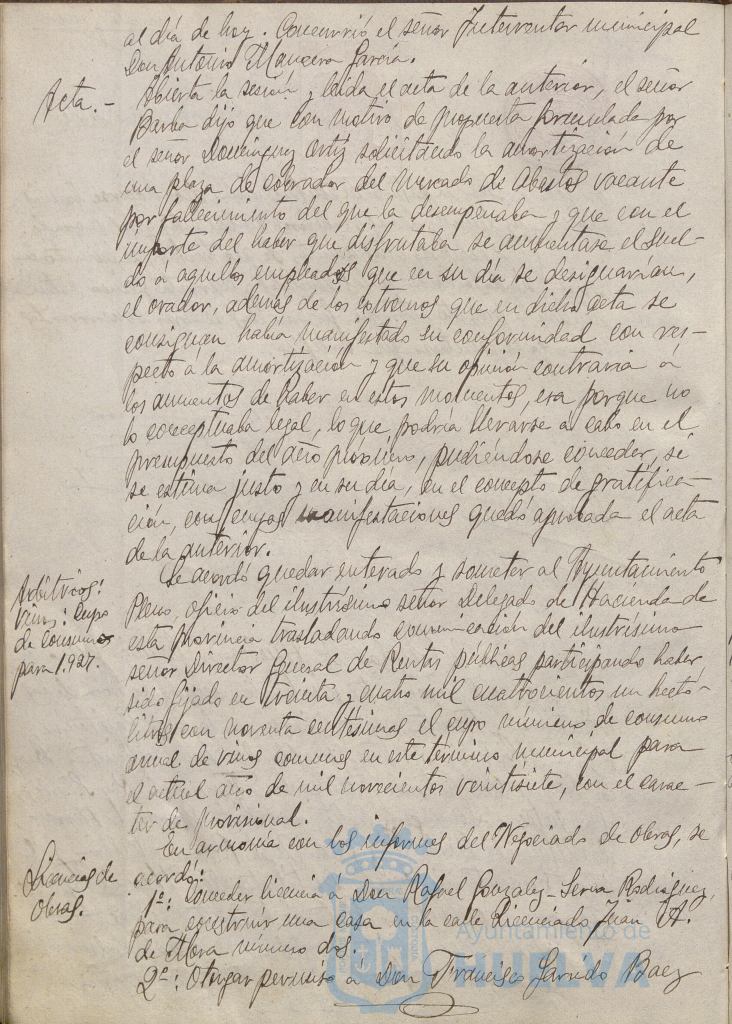 al día de hoy. Concurrió el señor Interventor municipal
Don Antonio Mancera García.
Acta.- Abierta la sesión y leída el acta de la anterior, el señor
Barba dijo que con motivo de propuesta formulada por
el señor Domínguez Ortiz solicitando la amortización de
una plaza de cobrador del Mercado de Abastos vacante
por fallecimiento del que la desempeñaba y que con el
importe del haber que disfrutaba se aumentase el suel-
do á aquellos empleados que en su día se designarían,
el orador, además de los extremos que en dicha acta se
consignan había manifestado su conformidad con res-
pecto á la amortización y que su opinión contraria á
los aumentos de haber en estos momentos, era porque no
lo conceptuaba legal, lo que podría llevarse a cabo en el
presupuesto del año próximo, pudiéndose conceder, si
se estima justo y en su día, en el concepto de gratifica-
ción, con cuyas manifestaciones quedó aprobada el acta
de la anterior.
Arbitrios:
vinos: Cupo
de consumos
para 1.927.
Se acordó quedar enterado y someter al Ayuntamiento
Pleno, oficio del ilustrísimo señor Delegado de Hacienda de
esta provincia trasladando comunicación del ilustrísimo
señor Director General de Rentas públicas participando haber
sido fijado en treinta y cuatro mil cuatrocientos un hecto-
litros con noventa centésimas el cupo mínimo de consumo
anual de vinos comunes en este término municipal para
el actual año de mil novecientos veintisiete, con el carac-
ter de provisional.
Licencias de
Obras.
En armonía con los informes del Negociado de Obras, se
acordó:
1º: Conceder licencia á Don Rafael Gonzalez-Serna Rodriguez,
para construir una casa en la calle Licenciado Juan A.
de Mora número dos.
2º: Otorgar permiso á Don Francisco Garrido Baez
Ayuntamiento de
HUELVA